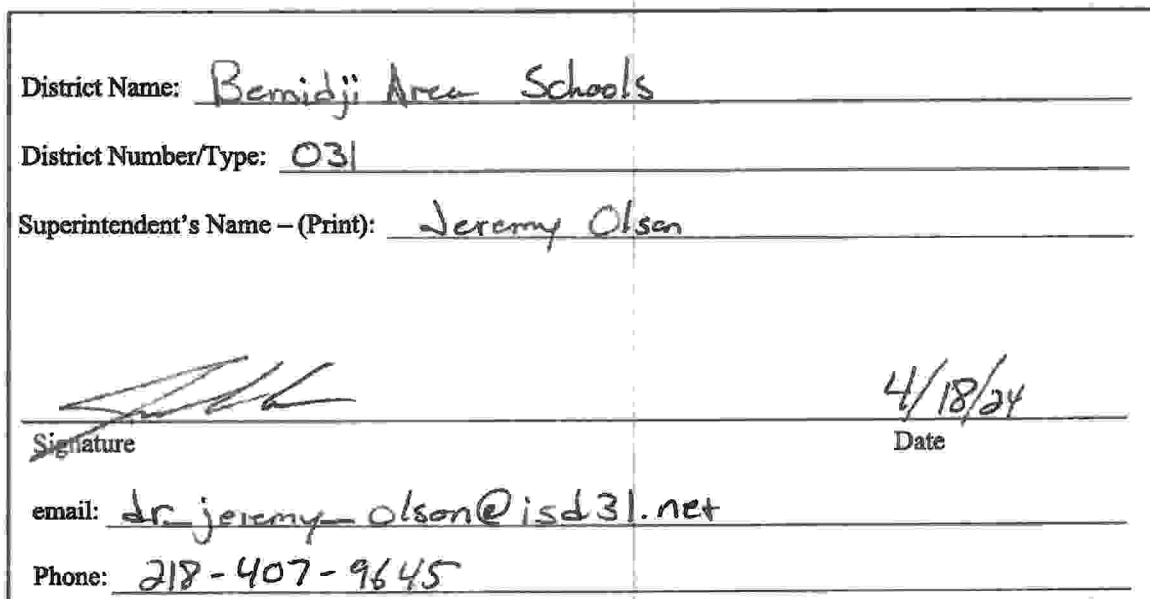 District Name: Bemidji Area Schools
District Number/Type: 031
Superintendent's Name – (Print): Jeremy Olson
4/18/24
Signature Date
email: dr_jeremy_olson@isd31.net
Phone: 218-407-9645